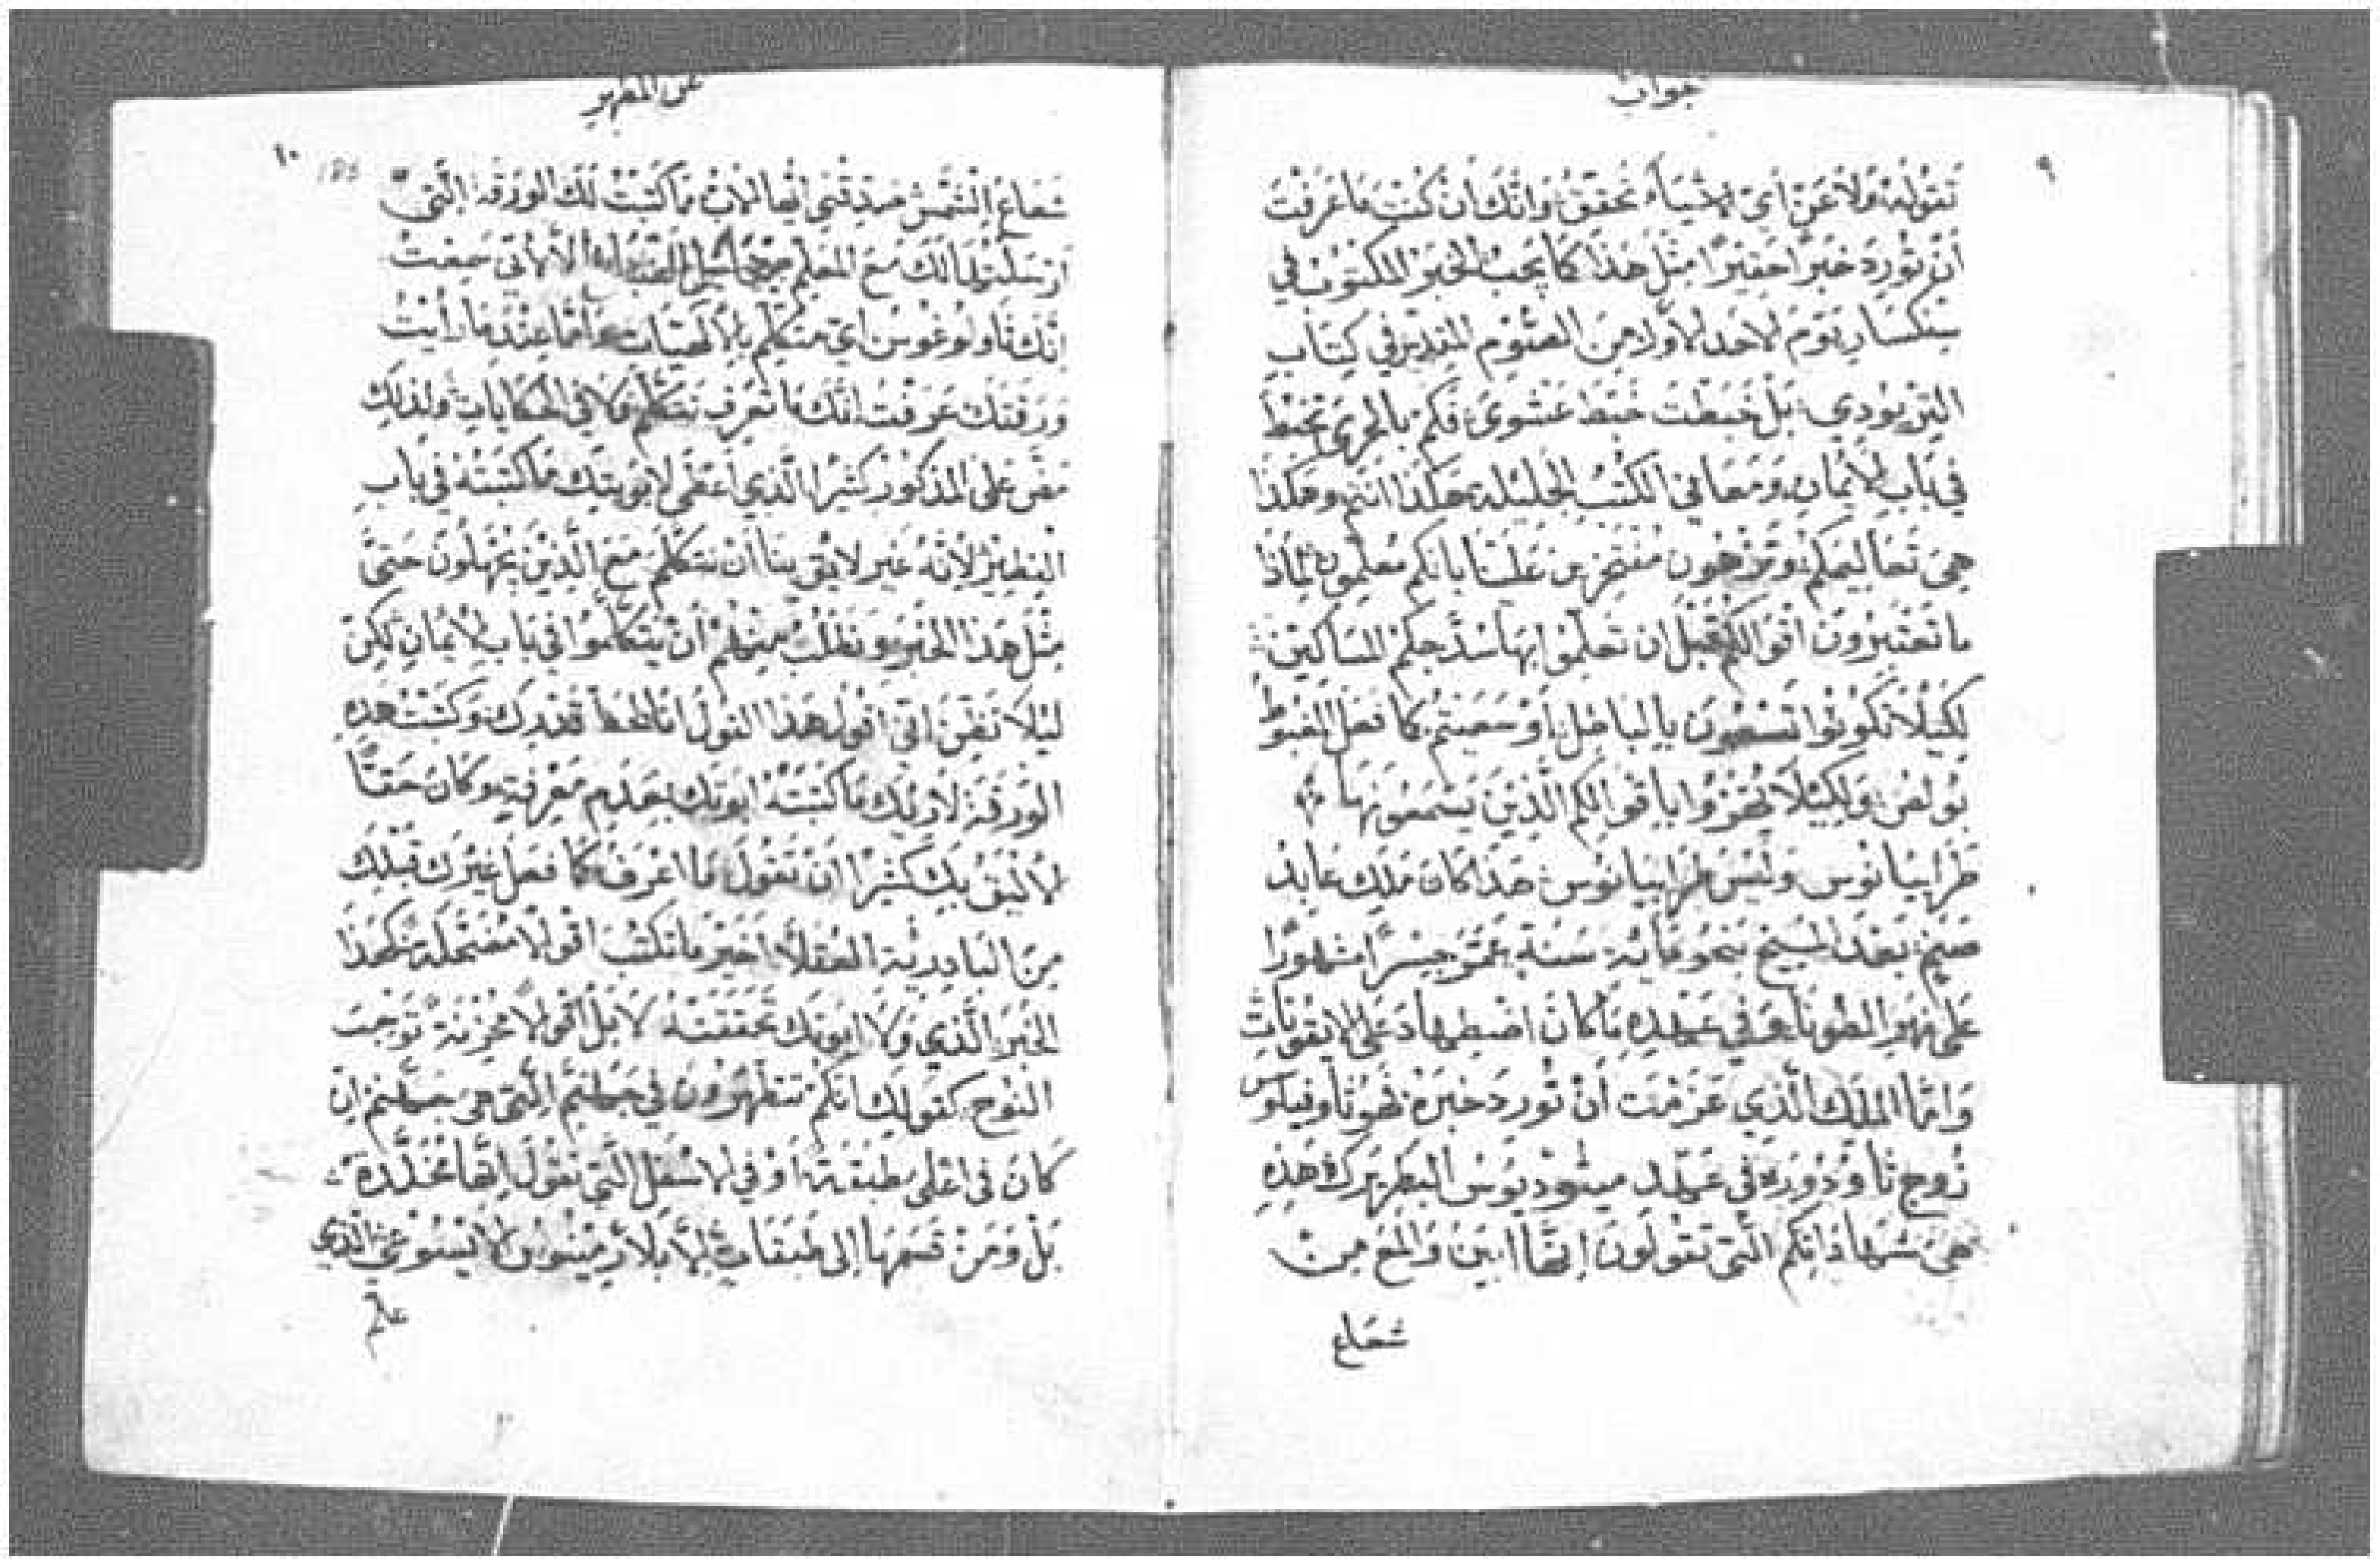 جواب
٩
تَقُولُهُ وَلَا عَنْ أَيّ الاشيَاء تحققُ وَانَّك أنْ كُنتَ مَا عَرَفْتَ
أَنْ تُورِدَ خَبَرًا حَقيرًا مِثْلَ هَذَا كَمَا يَجب الخبَرُ المكتوبُ في
سِنكسَار يَوْمَ الاحَد الأوّل منَ الصَّوم المقدّس في كِتَاب
التريودي بَلْ خَبَطْتَ خَبَط عَشوى فكم بالحري تخبط
في بَاب الايْمَان وَمَعَاني الكُتُب الجليلة هَكَذَا انتم وهكذا
هِيَ تَعَاليمكم وَتزهون مُفتخرين عَلَينَا بانكم مُعلمون لمَاذَا
مَا تَعتَبرُون اقوَالكم قَبلَ ان تعلمُوا بهَا سُذّجكم المسَاكين
لكَيْلَا تَكونُوا تسعون بالباطل أو سَعَيتم كما فعل الغبُوط
بُولُص وَلكَيْلَا تُهزوا باقوالكم الَّذينَ يَسمَعُونهَا
طَرَايَيَانُوس وَليس طرابيانوس هَذَا كَانَ مَلك عَابد
صَنَم بَعْدَ المَسِيح بنحو مَاية سَنة عَمَّرَ جِسْرًا مَشهورًا
عَلى نهر الطونَا وَفي عَهده مَا كَانَ اضطهاد عَلى الايقونات
وَامَّا المَلك الَّذي عَزَمْتَ أَنْ تُورِدَ خَبَرَهُ فَهُوَ ثَاوفيلوس
زَوج ثَاوُدُورَه في عَهد ميثوديوس البَطريرك هَذه
هيَ شهَادَاتكم الَّتي تقولونَ إنّها ابين وَالمع من
شعَاع
عن المطهر
١٠
شعَاع الشَّمس صَدِّقني ايّها الابُ مَا كَتَبْتُ لَك الورَقة الَّتي
ارسَلتهَا لَكَ مَعَ المعَلم الا لاني سَمِعتُ
انّكَ ثَاولوغوس اي متكلّم بالالهيات عِنْدَمَا رَأيتُ
وَرَقتكَ عَرَفتُ انَّكَ مَا تعرف تتكلم وَلَا في الحكايات وَلذلك
عَلى المذكور كثيرًا الَّذي اعطى لابوتك مَا كتبتهُ في بَاب
المَطهر لأنّهُ غير لايق بنَا أنْ نتكلَّمَ مَعَ الَّذِينَ يَجْهَلُونَ حَتّى
مِثْلَ هَذَا الخبر وَنطلب منهم أنْ يَتكلّمُوا في بَاب الايمَان لكن
لَيْلَا تَظنّ اني اقول هَذَا القَولَ انَا لحط قَدرك وَكَتبتُ هَذِه
الوَرقةَ لاريك مَا كتبَتْهُ ابوتك بعَدَم مَعْرفة وكَان حَقًّا
الاليق بك كثيرًا انْ تَقول مَا اعرف كَمَا فعل غيرك قبلك
مِنَ البادريّة العقلا اخير مَا تكتب اقوالا مضحكة كهَذَا
الخبر الَّذي وَلَا ابوتك تحققتهُ لَا بَلْ اقوالا محزنة تُوجب
النوح كقولك انكم تتطهرُونَ في جَهنم التي هي جهنم ان
كَانَ في اعلى طبقة أو في الاسفل الَّتي تقُولَ إنَّها مُخَلّدة
بَلْ وَمَن قَسَمَهَا إلى طَبقَات الَّذي
عالم